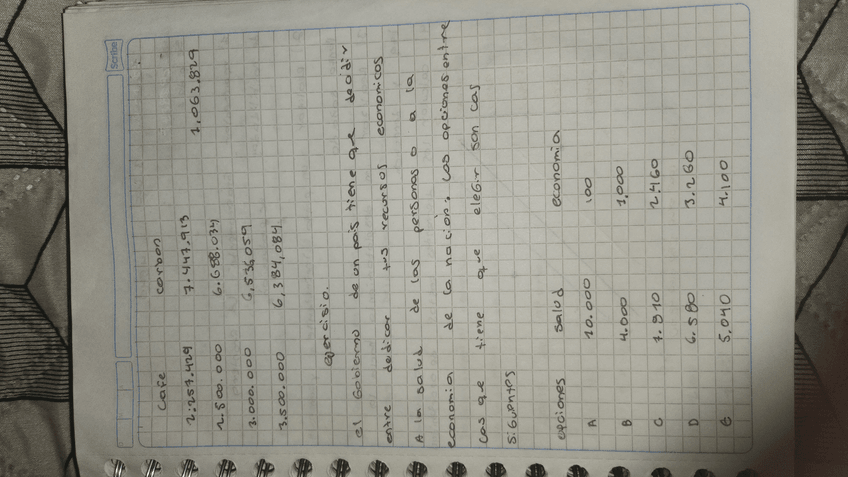 Scribe
cafe carbon
2.257.429 7.447.913 1.063.829
2.500.000 6.688.034
3.000.000 6,536,059
3.500.000 6,384,084
ejercisio.
el Gobierno de un pais tiene que decidir
entre dedicar sus recursos economicos
A la salud de las personas o a la
economia de la nacion. Las opciones entre
Las que tiene que elegir son Las
siguentes
opciones salud economia
A 10.000 100
B 4.000 1,000
C 7.910 2.460
D 6.580 3.260
E 5.040 4.100